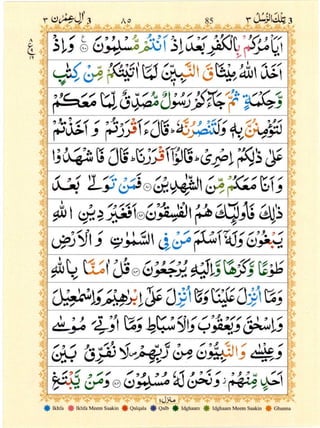 تِلْكَ الرُّسُلُ ٣ 85 ٨٥ اٰلِ عِمْرٰن ٣
اَيَاْمُرُكُمْ بِالْكُفْرِ بَعْدَ اِذْ اَنْتُمْ مُّسْلِمُوْنَ وَاِذْ
اَخَذَ اللّٰهُ مِيْثَاقَ النَّبِيّٖنَ لَمَاۤ اٰتَيْتُكُمْ مِّنْ كِتٰبٍ
وَّحِكْمَةٍ ثُمَّ جَآءَكُمْ رَسُوْلٌ مُّصَدِّقٌ لِّمَا مَعَكُمْ
لَتُؤْمِنُنَّ بِهٖ وَلَتَنْصُرُنَّهٗ ؕ قَالَ ءَاَقْرَرْتُمْ وَ اَخَذْتُمْ
عَلٰى ذٰلِكُمْ اِصْرِىْ ؕ قَالُوْۤا اَقْرَرْنَا ؕ قَالَ فَاشْهَدُوْا
وَ اَنَا مَعَكُمْ مِّنَ الشّٰهِدِيْنَ فَمَنْ تَوَلّٰى بَعْدَ
ذٰلِكَ فَاُولٰٓئِكَ هُمُ الْفٰسِقُوْنَ اَفَغَيْرَ دِيْنِ اللّٰهِ
يَبْغُوْنَ وَلَهٗۤ اَسْلَمَ مَنْ فِى السَّمٰوٰتِ وَ الْاَرْضِ
طَوْعًا وَّكَرْهًا وَّاِلَيْهِ يُرْجَعُوْنَ قُلْ اٰمَنَّا بِاللّٰهِ
وَمَاۤ اُنْزِلَ عَلَيْنَا وَمَاۤ اُنْزِلَ عَلٰٓى اِبْرٰهِيْمَ وَاِسْمٰعِيْلَ
وَاِسْحٰقَ وَيَعْقُوْبَ وَالْاَسْبَاطِ وَمَاۤ اُوْتِىَ مُوْسٰى
وَعِيْسٰى وَالنَّبِيُّوْنَ مِنْ رَّبِّهِمْ لَا نُفَرِّقُ بَيْنَ
اَحَدٍ مِّنْهُمْ وَنَحْنُ لَهٗ مُسْلِمُوْنَ وَمَنْ يَّبْتَغِ
Ikhfa Ikhfa Meem Saakin Qalqala Qalb Idghaam Idghaam Meem Saakin Ghunna